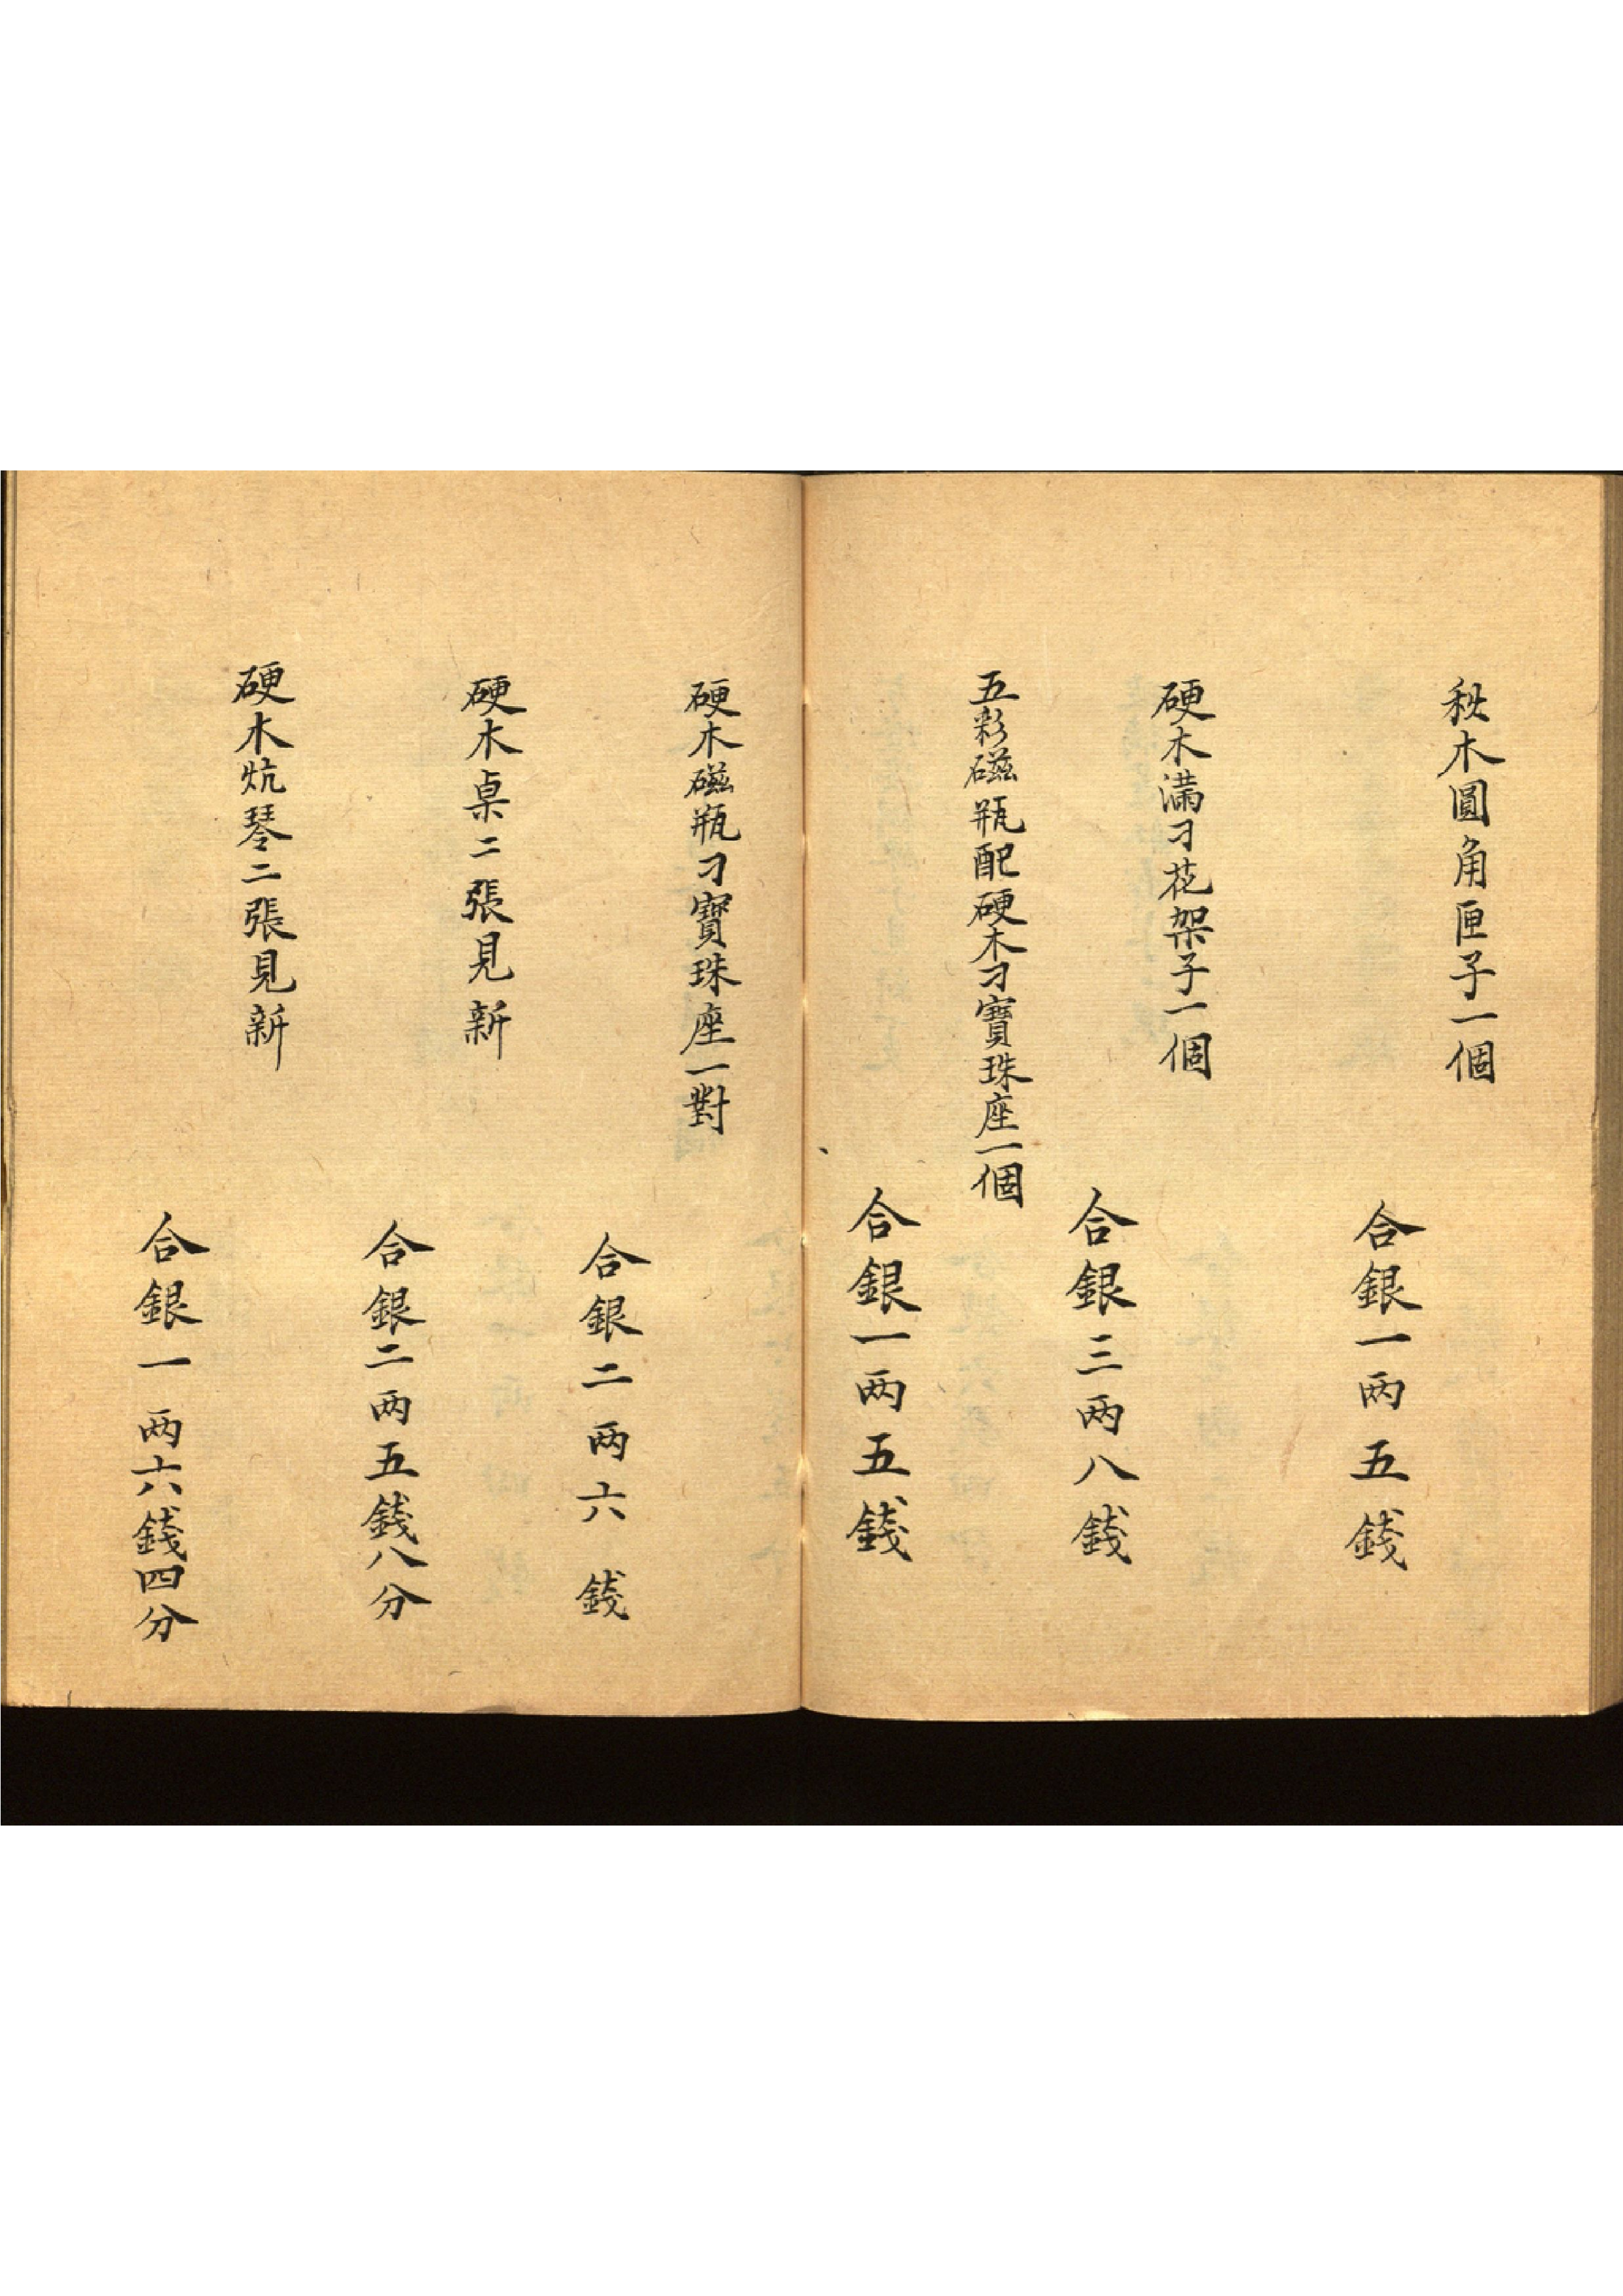 秋木圓角匣子一個
合銀一两五錢
硬木滿刁花架子一個
合銀三两八錢
五彩磁瓶配硬木刁寶珠座一個
合銀一两五錢
硬木磁瓶刁寶珠座一對
合銀二两六錢
硬木桌二張見新
合銀二两五錢八分
硬木炕琴二張見新
合銀一两六錢四分